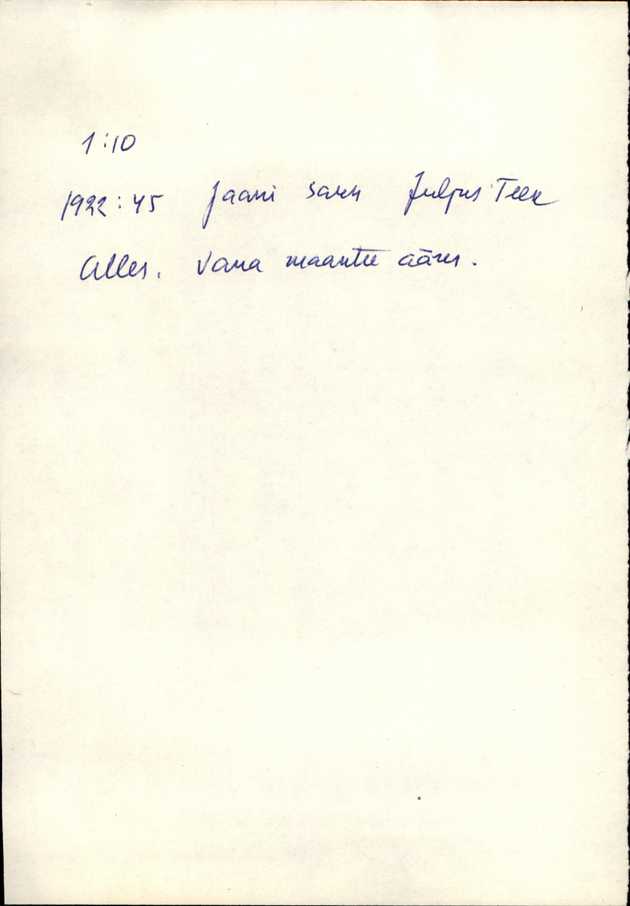 1:10
1922:45 Jaani saru Juljus Teek
Alles. Vana maantee ääres.